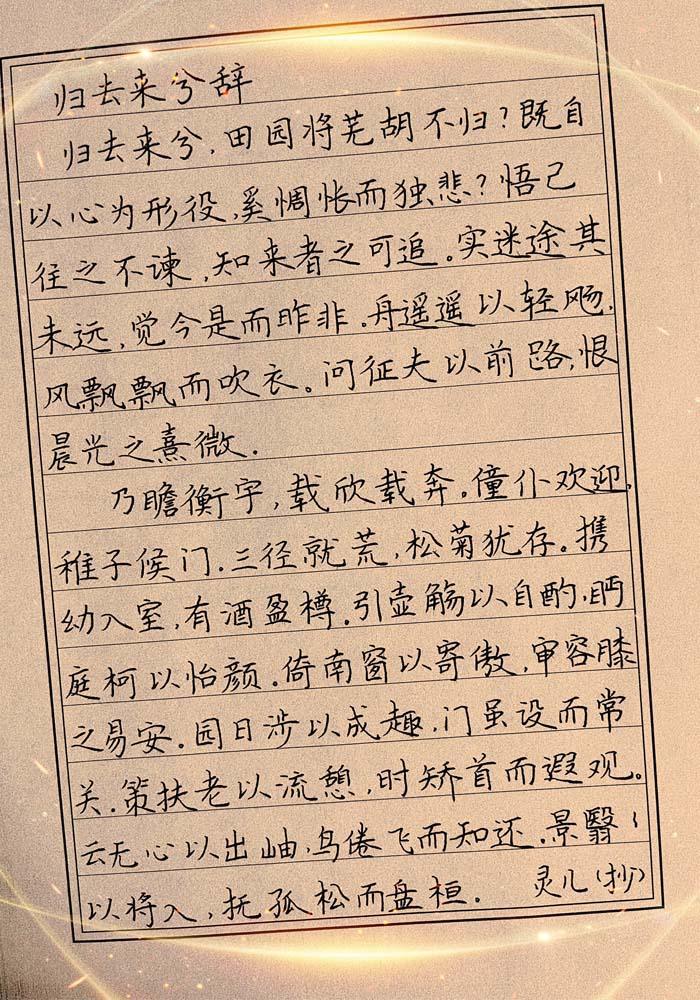 归去来兮辞
归去来兮，田园将芜胡不归？既自
以心为形役，奚惆怅而独悲？悟已
往之不谏，知来者之可追。实迷途其
未远，觉今是而昨非。舟遥遥以轻飏，
风飘飘而吹衣。问征夫以前路，恨
晨光之熹微。
乃瞻衡宇，载欣载奔。僮仆欢迎，
稚子候门。三径就荒，松菊犹存。携
幼入室，有酒盈樽。引壶觞以自酌，眄
庭柯以怡颜。倚南窗以寄傲，审容膝
之易安。园日涉以成趣，门虽设而常
关。策扶老以流憩，时矫首而遐观。
云无心以出岫，鸟倦飞而知还。景翳翳
以将入，抚孤松而盘桓。 灵儿（抄）